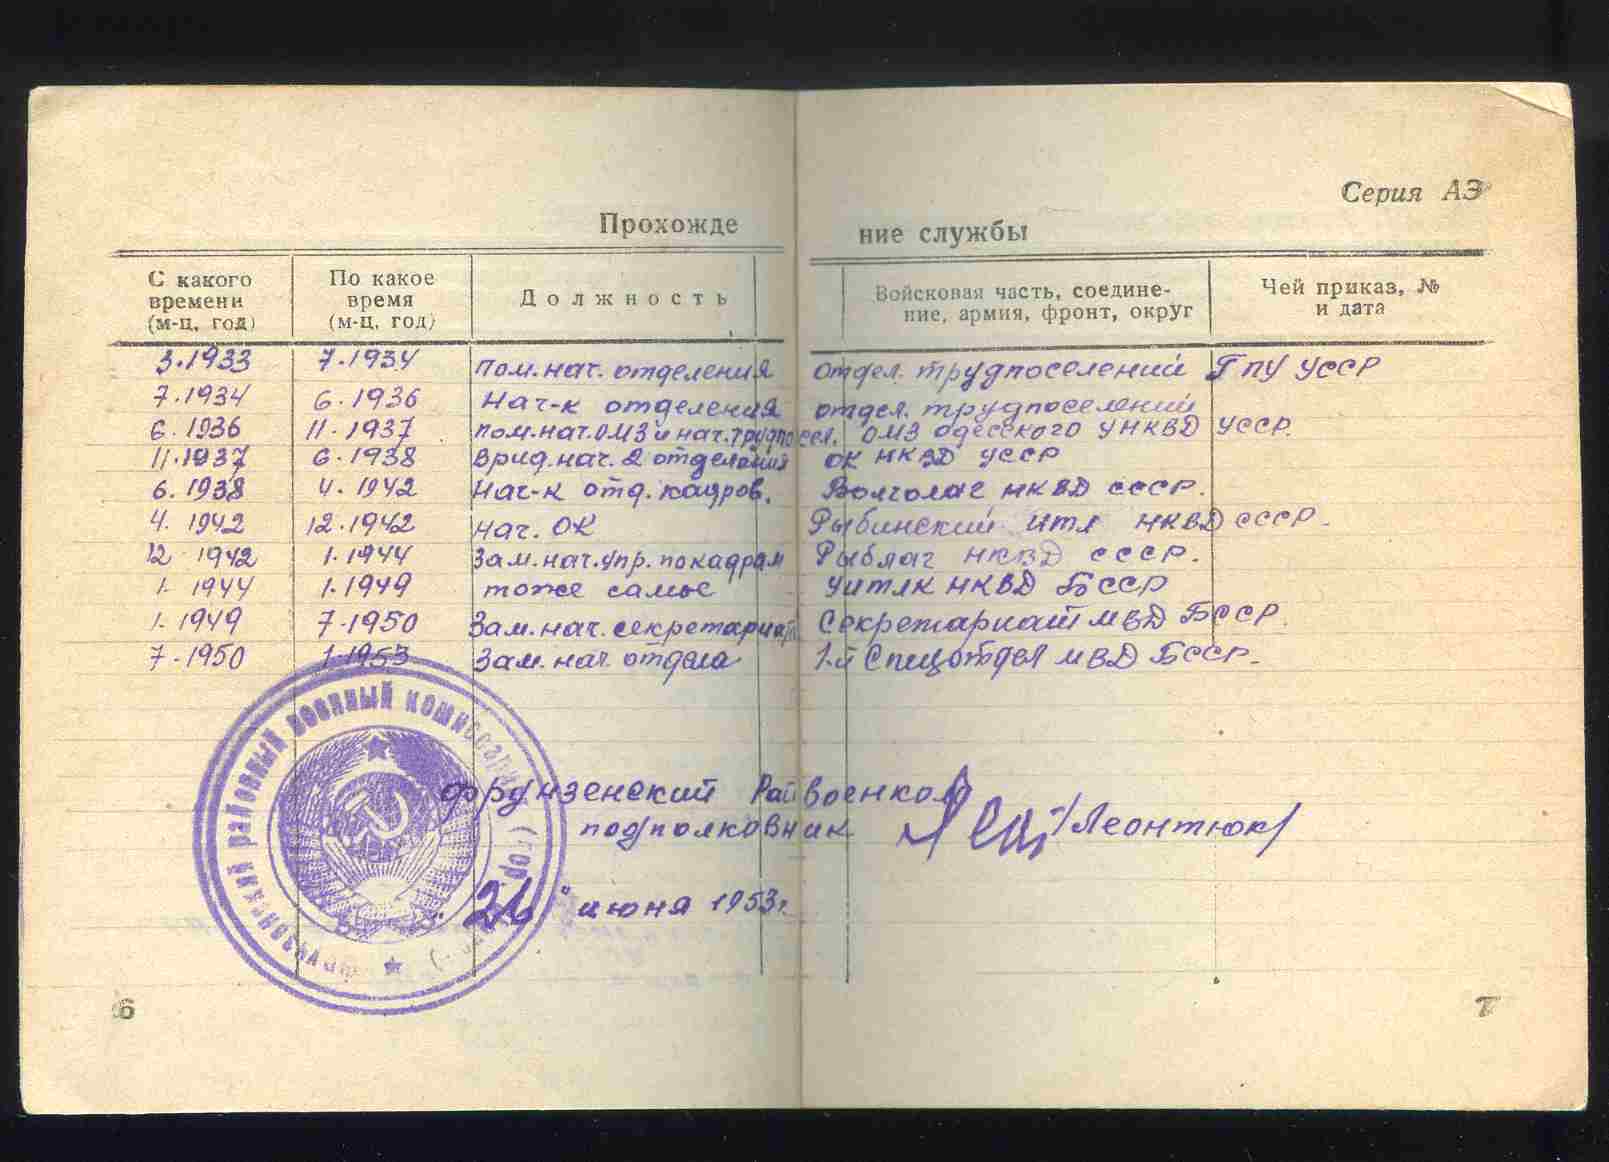 Серия АЭ
Прохождение службы
С какого времени (м-ц, год) По какое время (м-ц, год) Должность Войсковая часть, соединение, армия, фронт, округ Чей приказ, № и дата
3.1933 7.1934 Пом.нач. отделения отдел. трудпоселений ГПУ УССР
7.1934 6.1936 Нач-к отделения отдел. трудпоселений
6.1936 11.1937 Пом.нач.ОМЗ и нач.трудпосел. ОМЗ Одесского УНКВД УССР.
11.1937 6.1938 Врид.нач. 2 отделения ОК НКВД УССР
6.1938 4.1942 Нач-к отд. кадров. Волголаг НКВД СССР.
4.1942 12.1942 Нач. ОК Рыбинский ИТЛ НКВД СССР.
12 1942 1.1944 Зам.нач.упр. по кадрам Рыблаг НКВД СССР.
1. 1944 1.1949 тоже самое УИТЛК НКВД БССР
1.1949 7.1950 Зам.нач. секретариата Секретариат МВД БССР.
7.1950 1.1953 Зам.нач. отдела 1-й Спецотдел МВД БССР.
Фрунзенский Райвоенком
подполковник /Леонтюк/
26 " июня 1953 г.
районный военный комиссариат (гор
6
7